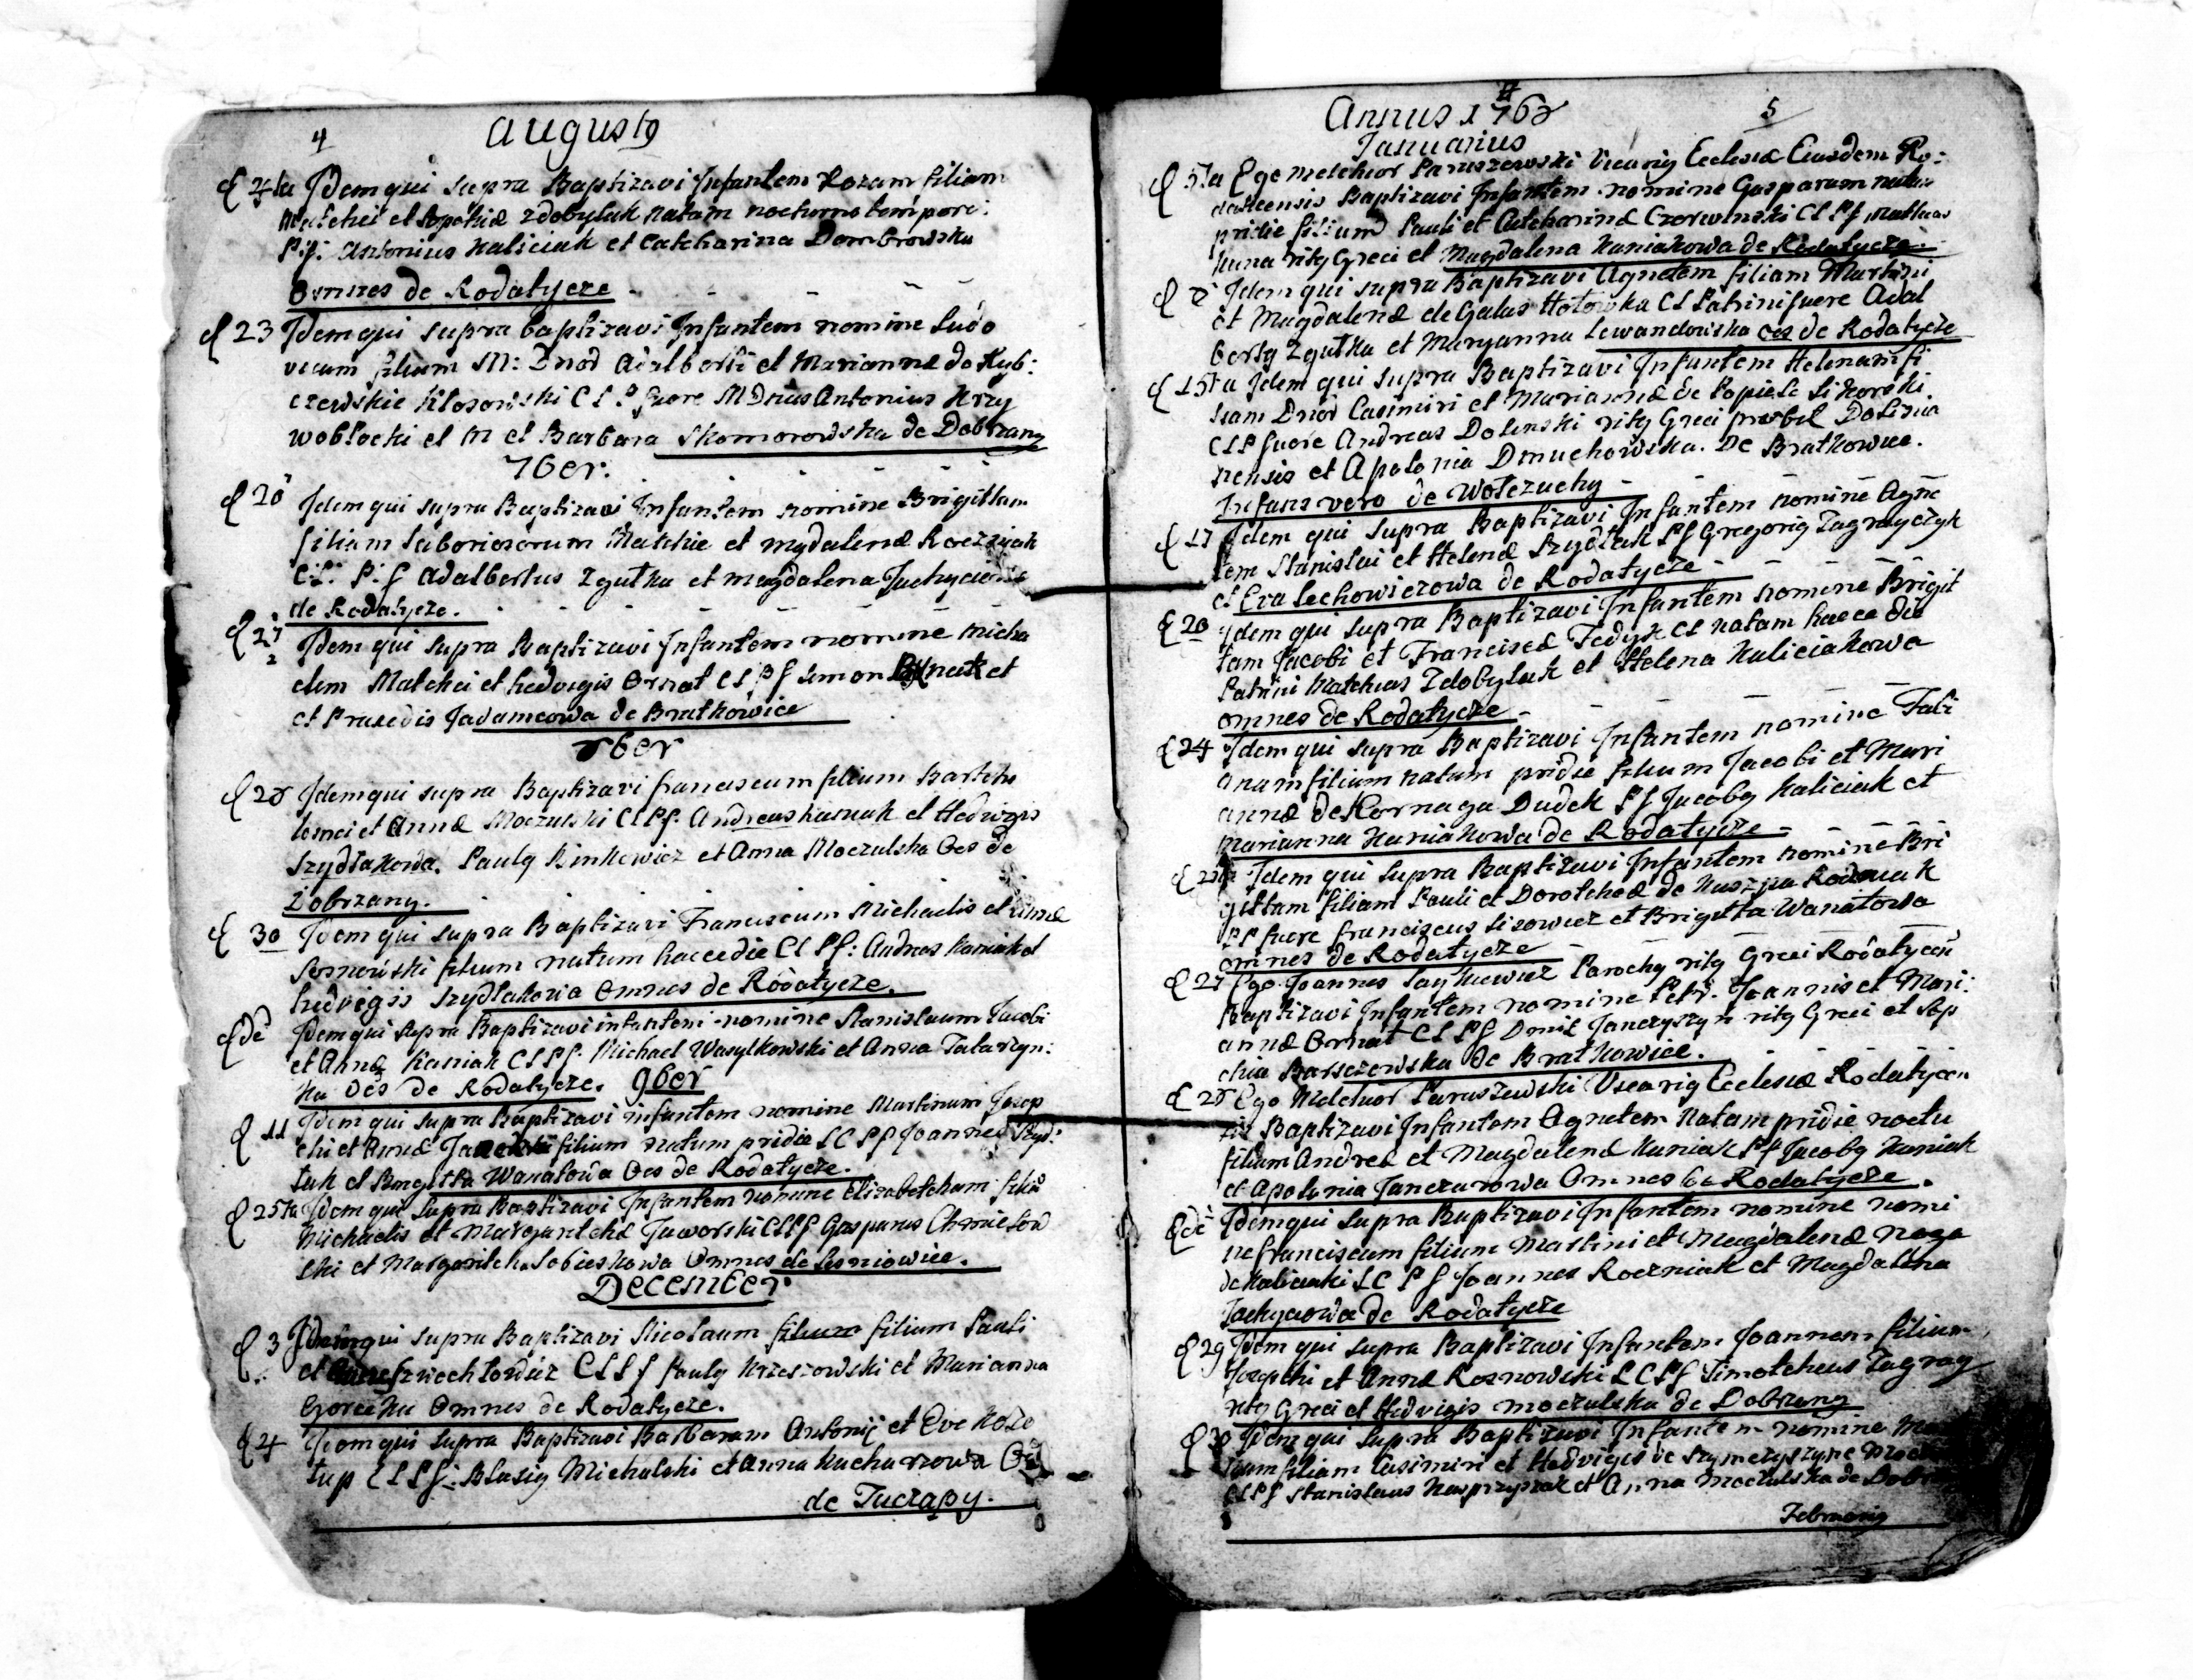 4
Augustus
4ta Idem qui supra Baptizavi Infantem Rozam filiam
Matthei et Sophiæ Zdobylak natam nocturno tempore.
P:f: Antonius Kaliciak et Catcharina Dombrowska
Omnes de Rodatycze
23 Idem qui supra baptizavi Infantem nomine Ludo
vicum filium M: Dnor Adalberti et Mariannæ de Ryb:
czewskie Klosowski C L P fuere MDnus Antonius Krzy
wobłocki et M et Barbara Skomorowska de Dobrzany
7ber.
20 Idem qui supra Baptizavi Infantem nomine Brigittam
filiam Laboriosorum Matthie et Magdalenæ Roczniak
C:L: P:f Adalbertus Zgutka et Magdalena
de Rodatycze.
27 Idem qui supra Baptizavi Infantem nomine Micha
elem Matthei et hedvigis Ornat C L P f Simon et
et Praxedis Jadamcowa de Bratkowice
8ber
28 Idem qui supra Baptizavi franciscum filium Bartcho
lomei et Annæ Moczulski C L P f. Andreas et Hedvigis
Szydłakowa. Paulg Binkiewicz et Anna Moczulska Oes de
Dobrzany.
30 Idem qui supra Baptizavi Franciscum Michaelis et Annæ
Sosnowski filium natum hacce die C L P f: Andreas Kaniak et
hedvigis Szydłakowa Omnes de Rodatycze.
de Idem qui supra Baptizavi infantem nomine Stanislaum Jacobi
et Annæ Kaniak C L P f. Michael Wasylkowski et Anna Tatarzyn:
ka Oes de Rodatycze. 9ber
11 Idem qui supra Baptizavi infantem nomine Martinum Josep
chi et Annæ filium natum pridie L C P f Joannes Szyd:
łak et Brigitta Wanatowa Oes de Rodatycze.
25ta Idem qui supra Baptizavi Infantem nomine Elizabetcham filia
Michaelis et Margaretchæ Jaworski C L P f Gasparus Chmielow
ski et Margaritcha Sobieskowa Omnes de Lesniowice.
December
3 Idem qui supra Baptizavi Nicolaum filium Pauli
et C L P f Paulg Krzeszowski et Marianna
Gorecka Omnes de Rodatycze.
4 Idem qui supra Baptizavi Barbaram Antonij et Eve Koło
tup C L P f: Blasig Michalski et Anna Kucharzowa Oes
de Tuczapy.
Annus 1762
5
Januarius
5ta Ego Melchior Paruszewski Vicarig Ecclesiæ Eiusdem Ro:
daticensis Baptizavi Infantem nomine Gasparum natum
pridie filium Pauli et Catcharinæ Czerwinski C L P f Mathias
Kuna ritg Greci et Magdalena Kaniakowa de Rodatycze.
8 Idem qui supra Baptizavi Agnetem filiam Martini
et Magdalenæ de Galas Hołowka C L Patrini fuere Adal
bertg Zgutka et Maryanna Lewandowska oes de Rodatycze
15ta Idem qui supra Baptizavi Infantem Helenam fi
liam Dnor Casimiri et Mariannæ de Popiele Sikorski.
C L P fuere Andreas Dolinski ritg Greci presbit Dolinia
nensis et Apolonia Dmuchowska. De Bratkowice.
Infans vero de Wołczuchy
17 Idem qui supra Baptizavi Infantem nomine Agne
tem Stanislai et Helenæ Szydłak P f Gregorig Zagrayczyk
et Eva Lechowiczowa de Rodatycze
20 Idem qui supra Baptizavi Infantem nomine Brigit
tam Jacobi et Franciscæ Fedyk C L natam hacce die
Patrini Matchias Zdobylak et Helena Kaliciakowa
omnes de Rodatycze
24 Idem qui supra Baptizavi Infantem nomine Fabi
anum filium natum pridie filium Jacobi et Mari
annæ de Kornaga Dudek P f Jacobg Kaliciak et
Marianna Kaniakowa de Rodatycze
Idem qui supra Baptizavi Infantem nomine Bri
gittam filiam Pauli et Dorotcheæ de Kaszpa
P P fuere franciscus Lisowicz et Brigitta Wanatowa
omnes de Rodatycze
27 Ego Joannes Parochg ritg Greci Rodatycen
Baptizavi Infantem nomine Petr. Joannis et Mari:
annæ Ornat C L P f Dmit Janczyszyn ritg Greci et Sop
chia Barszczowska de Bratkowice.
28 Ego Melchior Paruszewski Vicarig Ecclesiæ Rodatycen
sis Baptizavi Infantem Agnetem natam pridie noctu
filiam Andreæ et Magdalenæ Kaniak P f Jacobg Kaniak
et Apolonia Janczurowa Omnes de Rodatycze.
de Idem qui supra Baptizavi Infantem nomine nomi
ne franciscum filium Martini et Magdalenæ Noga
de Kaliciaki L C P f Joannes Roczniak et Magdalena
de Rodatycze
29 Idem qui supra Baptizavi Infantem Joannem filium
Josephi et Annæ Rosnowski L C P f Timotcheus Zagray
ritg Greci et Hedvigis Moczulska de Dobrzany
30 Idem qui supra Baptizavi Infantem nomine
filiam Casimiri et Hedvigis de
C L P f Stanislaus et Anna Moczulska de
Februarig